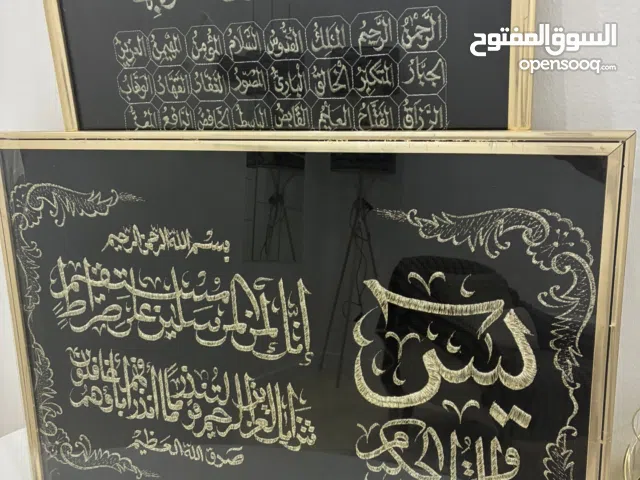 السوق المفتوح
opensooq.com
الرحمن الرحيم الملك القدوس السلام المؤمن المهيمن العزيز
الجبار المتكبر الخالق البارئ المصور الغفار القهار الوهاب
الرزاق الفتاح العليم القابض الباسط الخافض الرافع المعز
بسم الله الرحمن الرحيم
يس
والقرآن الحكيم
إنك لمن المرسلين على صراط مستقيم
تنزيل العزيز الرحيم لتنذر قوما ما أنذر آباؤهم فهم غافلون
صدق الله العظيم